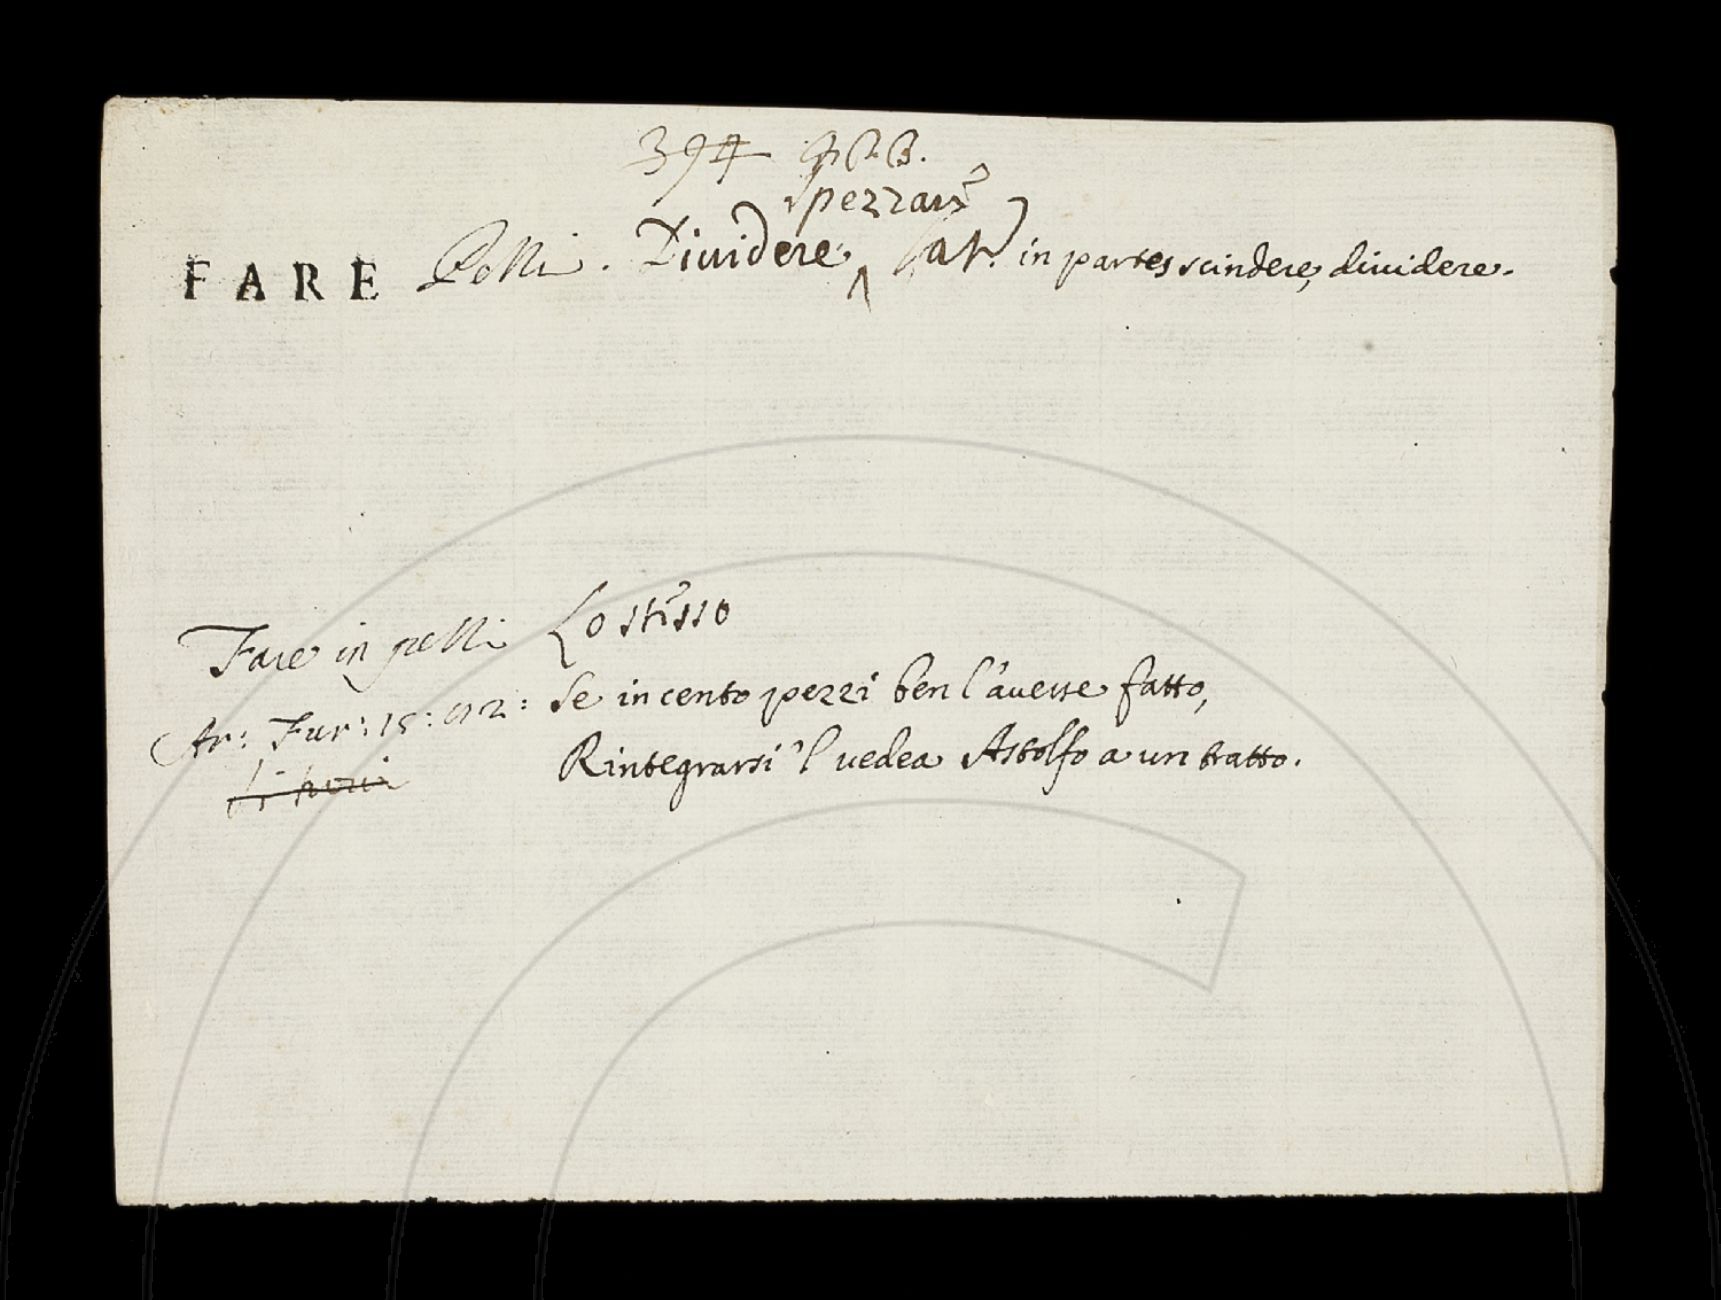 394
Spezzare
FARE Pezzi. Diuidere, ^ Lat. in partes scindere, diuidere.
Fare in pezzi Lo stesso
Ar: Fur: 15: 82: Se in cento pezzi ben l'auesse fatto,
Rintegrarsi 'l uedea Astolfo a un tratto.